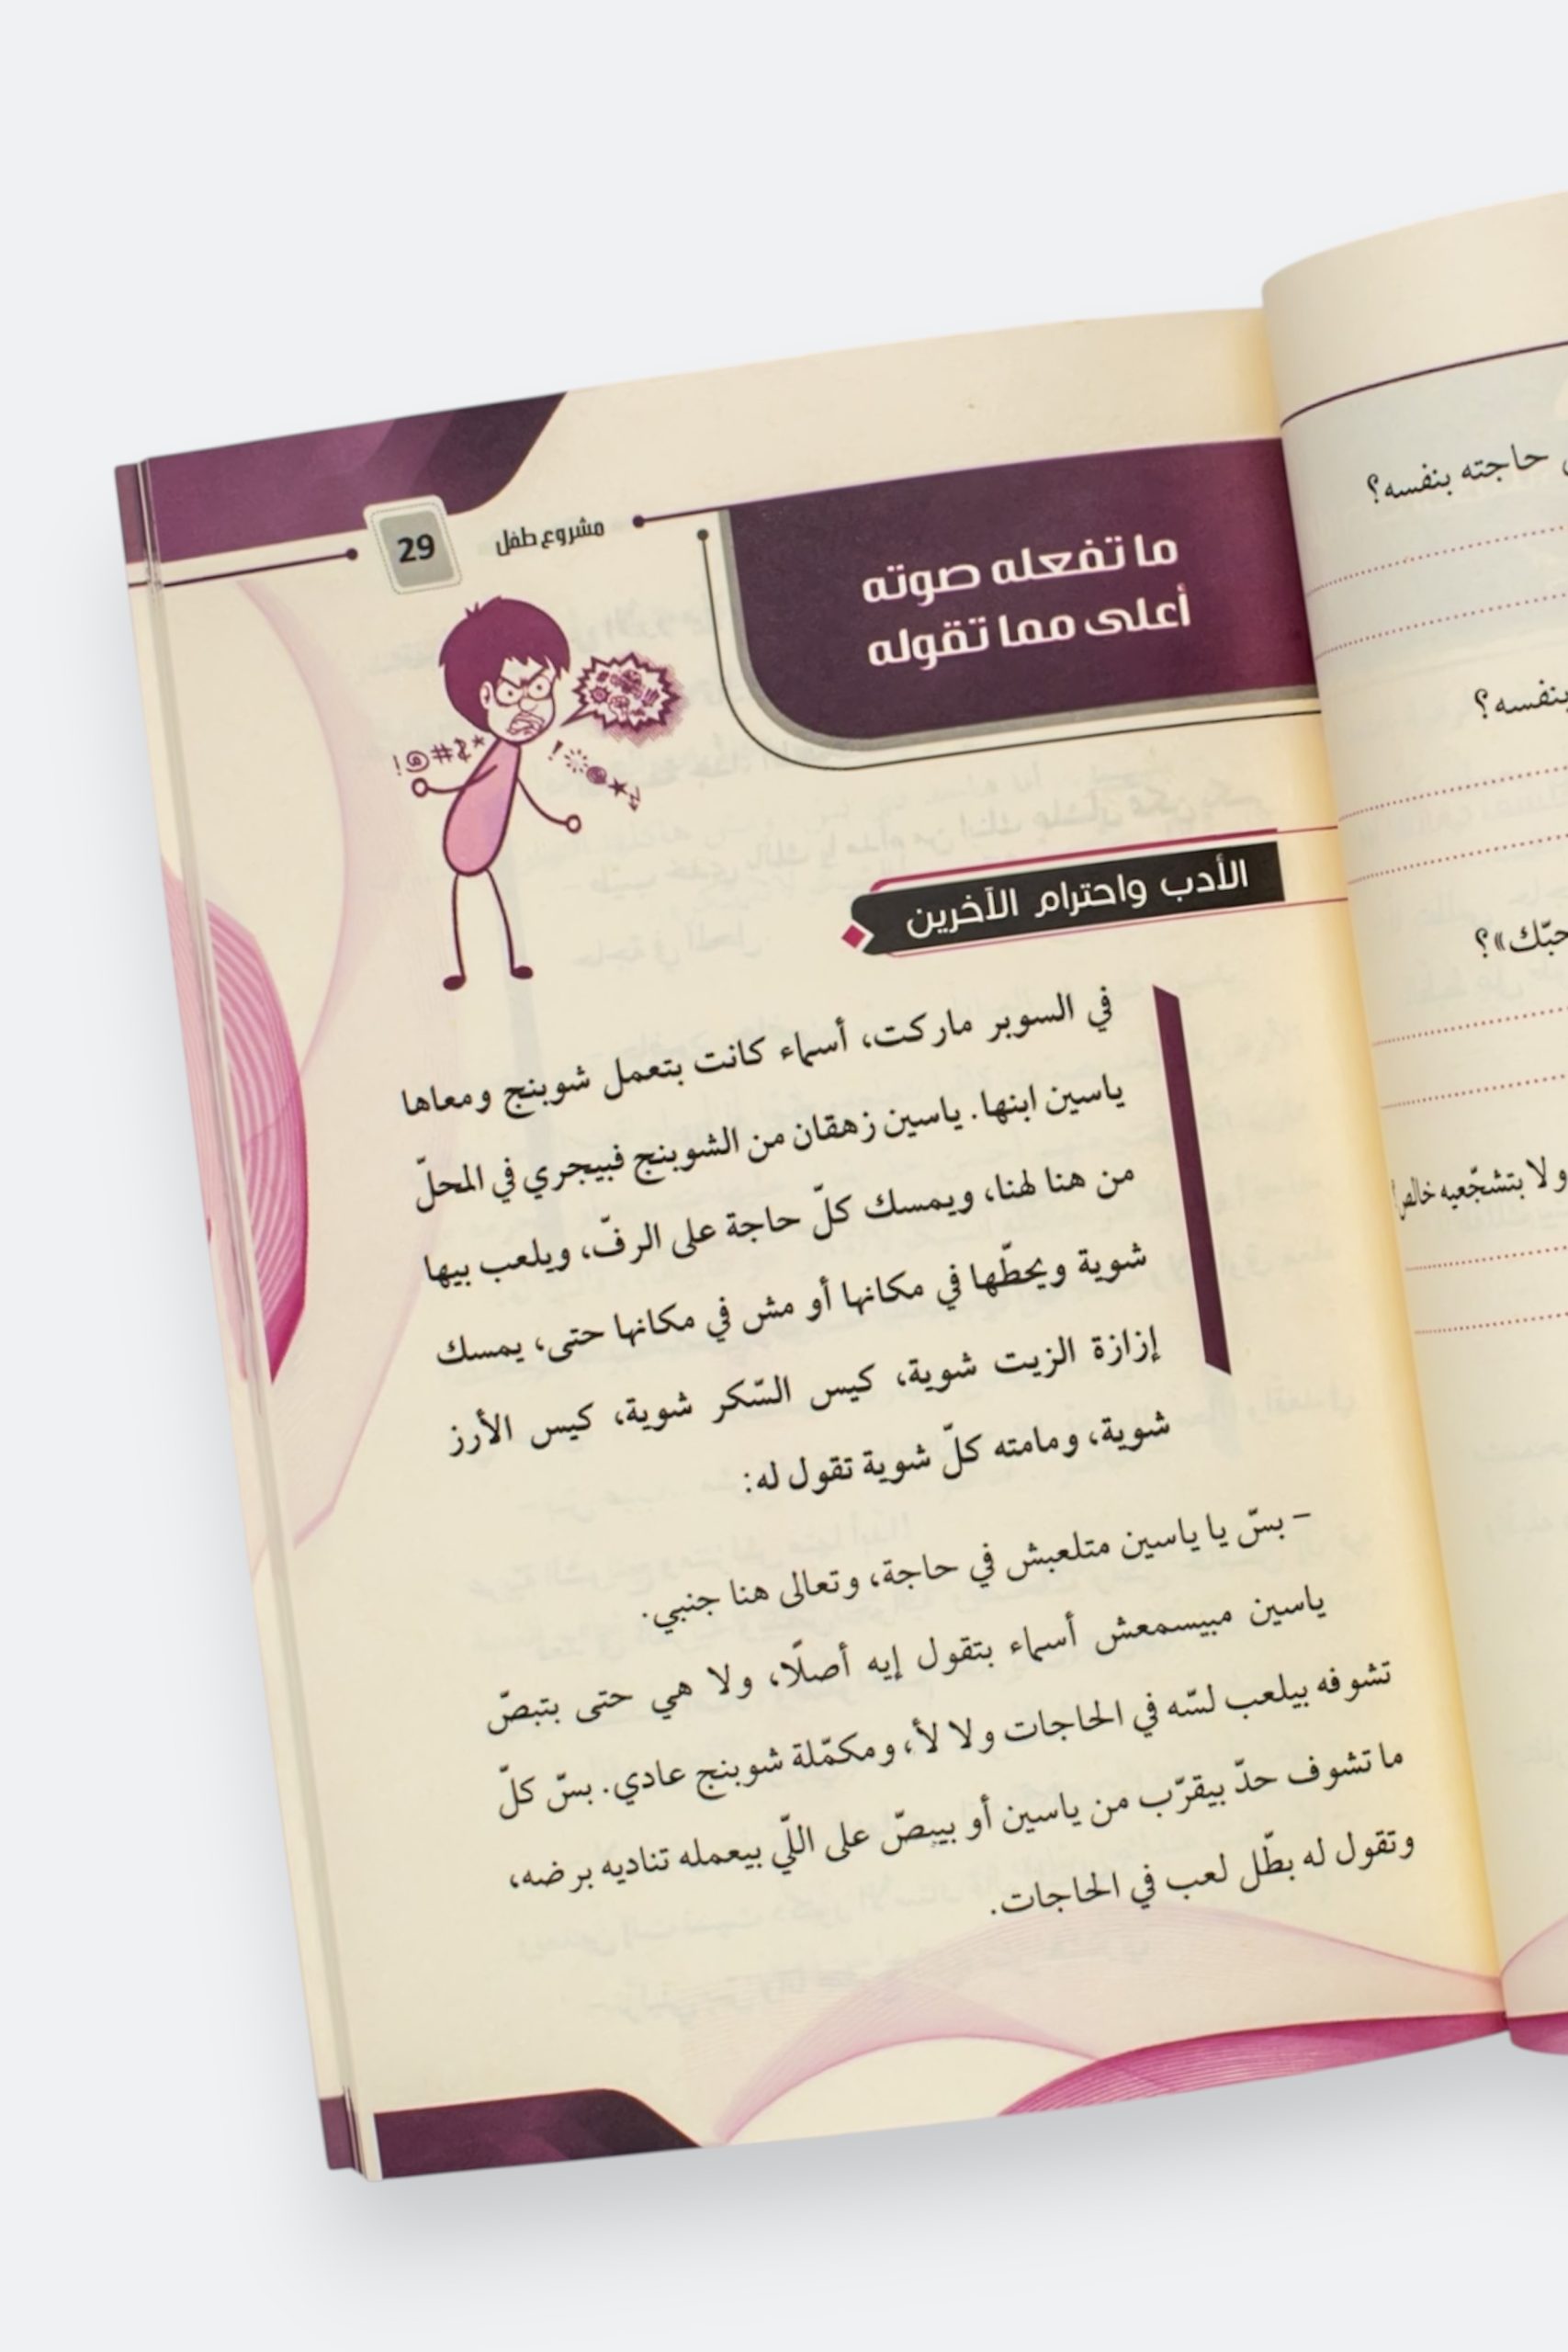 29
مشروع طفل
ما تفعله صوته
أعلى مما تقوله
!@#&*
الأدب واحترام الآخرين
في السوبر ماركت، أسماء كانت بتعمل شوبنج ومعاها
ياسين ابنها. ياسين زهقان من الشوبنج فبيجري في المحلّ
من هنا لهنا، ويمسك كلّ حاجة على الرفّ، ويلعب بيها
شوية ويحطّها في مكانها أو مش في مكانها حتى، يمسك
إزازة الزيت شوية، كيس السّكر شوية، كيس الأرز
شوية، ومامته كلّ شوية تقول له:
– بسّ يا ياسين متلعبش في حاجة، وتعالى هنا جنبي.
ياسين مبيسمعش أسماء بتقول إيه أصلًا، ولا هي حتى بتبصّ
تشوفه بيلعب لسّه في الحاجات ولا لأ، ومكمّلة شوبنج عادي. بسّ كلّ
ما تشوف حدّ بيقرّب من ياسين أو بيبصّ على اللّي بيعمله تناديه برضه،
وتقول له بطّل لعب في الحاجات.
حاجته بنفسه؟
بنفسه؟
حبّك»؟
ولا بتشجّعيه خالص؟